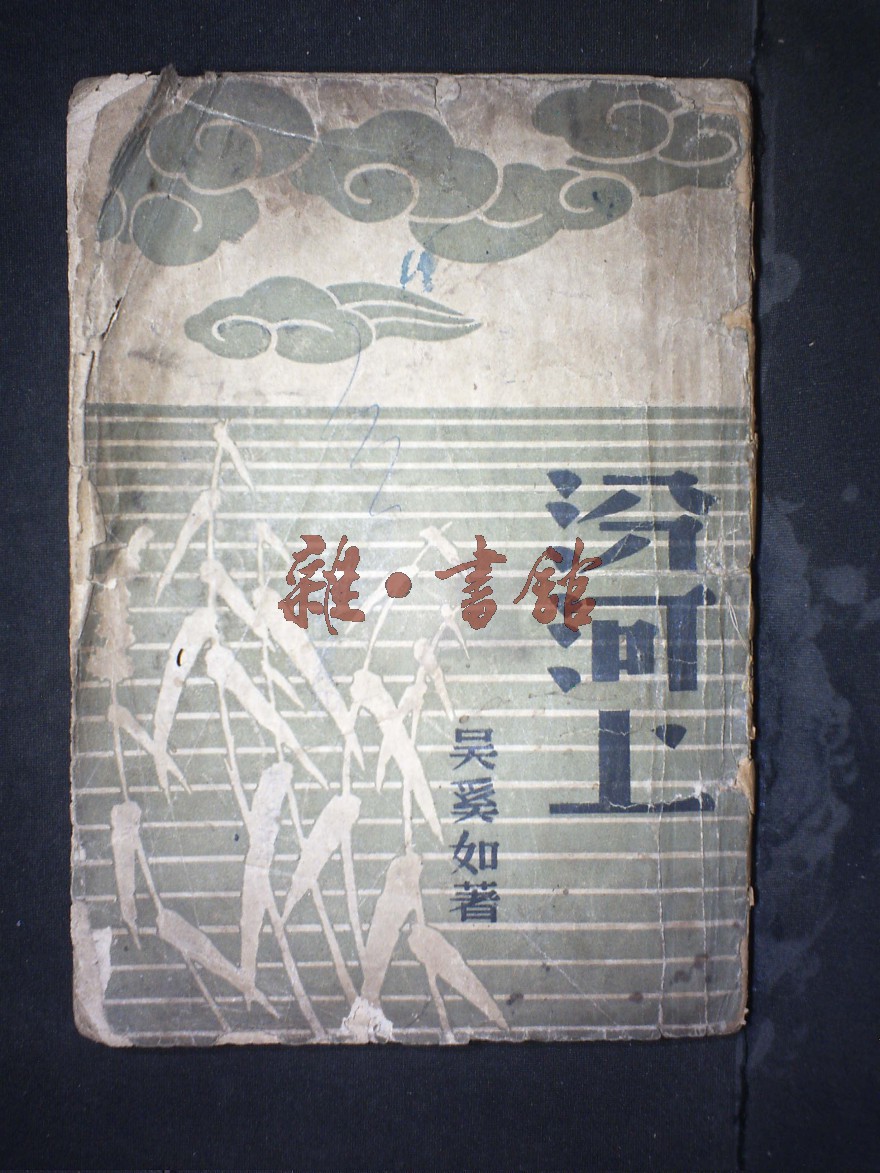 汾河上
吴奚如著
雜·書館